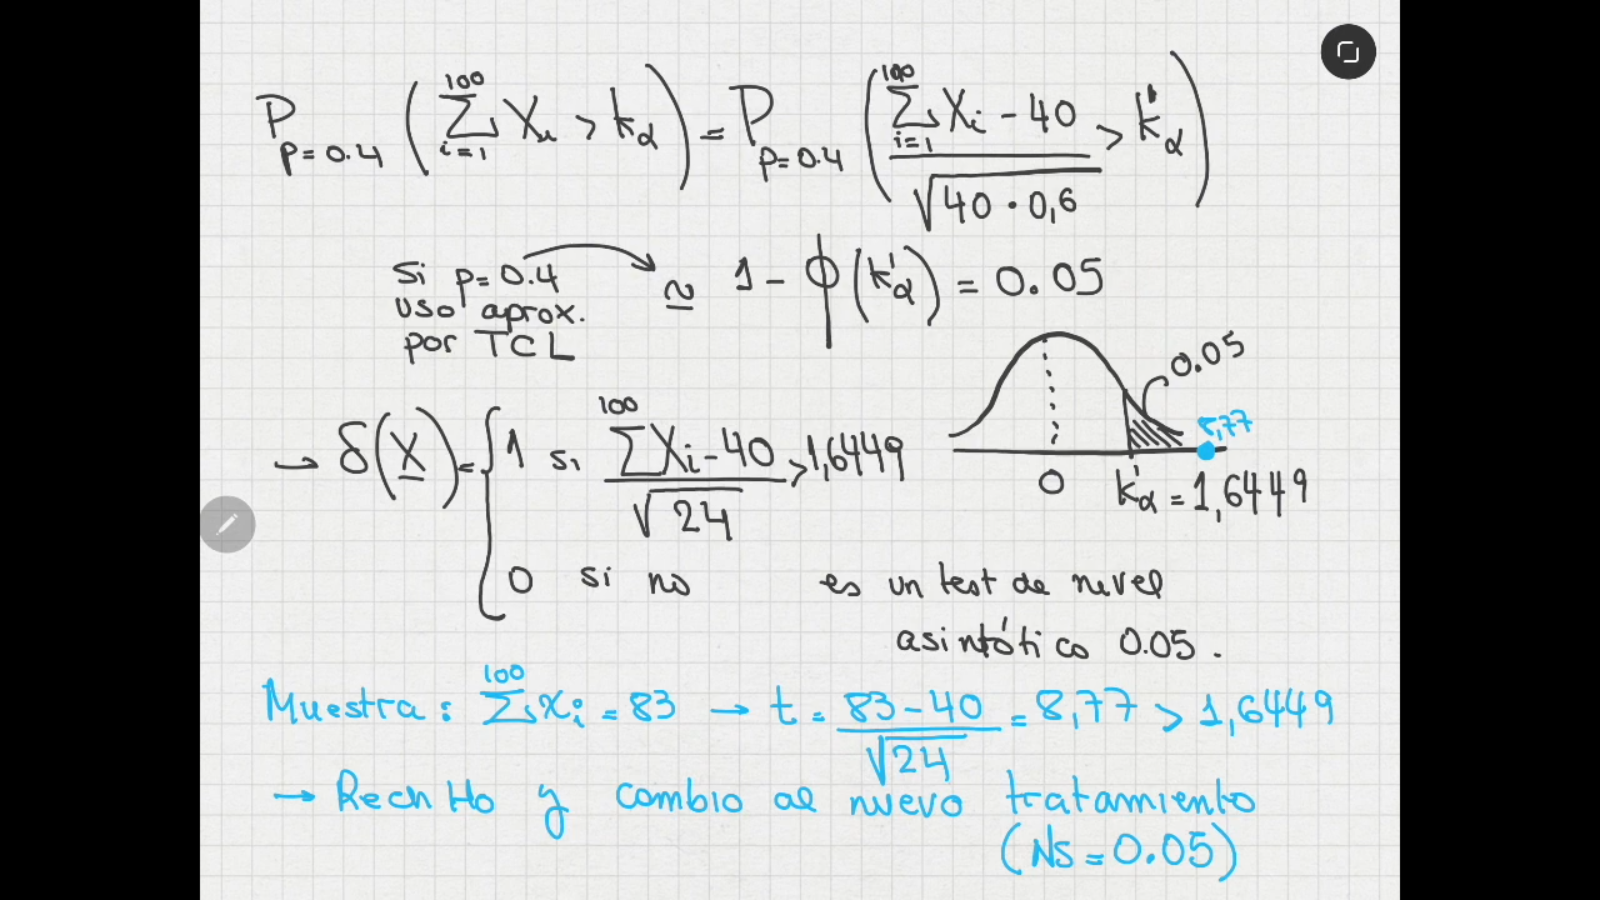 P_{p=0.4} ( \sum_{i=1}^{100} X_i > k_α ) = P_{p=0.4} ( \frac{\sum_{i=1}^{100} X_i - 40}{\sqrt{40 \cdot 0,6}} > k'_α )
Si p=0.4
uso aprox.
por TCL
≃ 1 - ϕ(k'_α) = 0.05
0.05
8,77
0
k'_α = 1,6449
→ δ(X) = { 1 si \frac{\sum^{100} X_i - 40}{\sqrt{24}} > 1,6449
0 si no
es un test de nivel
asintótico 0.05.
Muestra: \sum^{100} x_i = 83 → t = \frac{83-40}{\sqrt{24}} = 8,77 > 1,6449
→ Rech Ho y cambio al nuevo tratamiento
(Ns = 0.05)